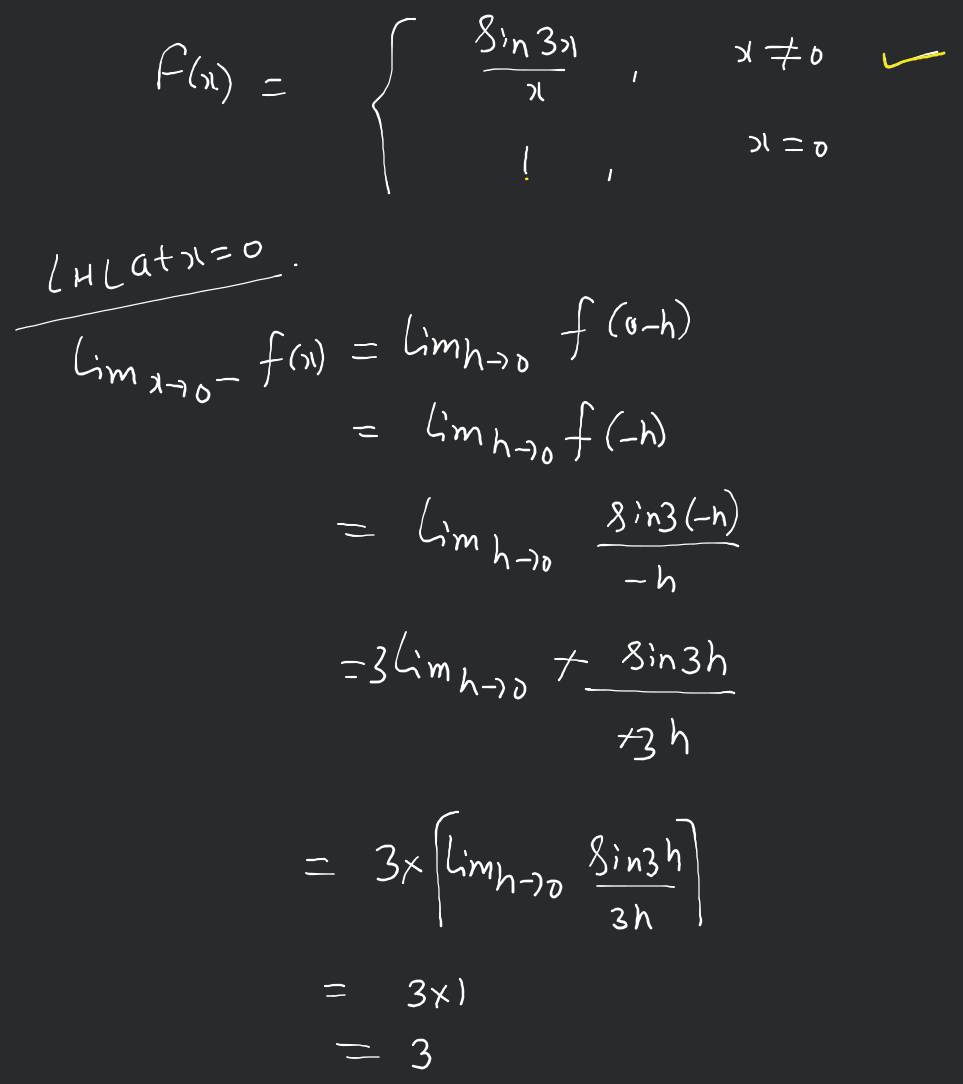 f(x) = { sin 3x / x , x ≠ 0
1 , x = 0
LHL at x = 0 .
Lim x→0⁻ f(x) = Lim h→0 f(0-h)
= Lim h→0 f(-h)
= Lim h→0 sin3(-h) / -h
= 3 Lim h→0 + sin3h / +3h
= 3× [Lim h→0 sin3h / 3h]
= 3×1
= 3